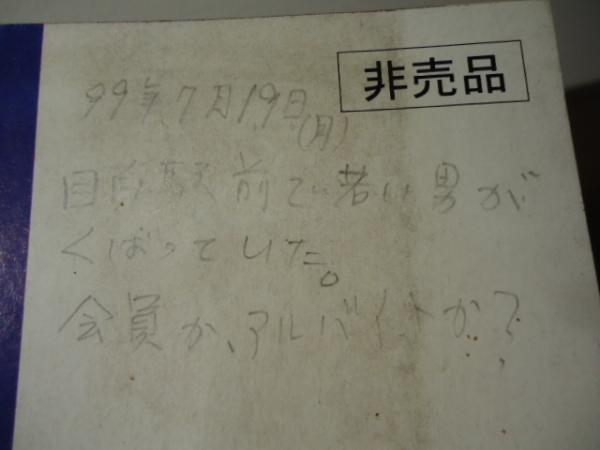 非売品
99年7月19日
(月)
目白駅前で若い男が
くばっていた。
会員か、アルバイトか?